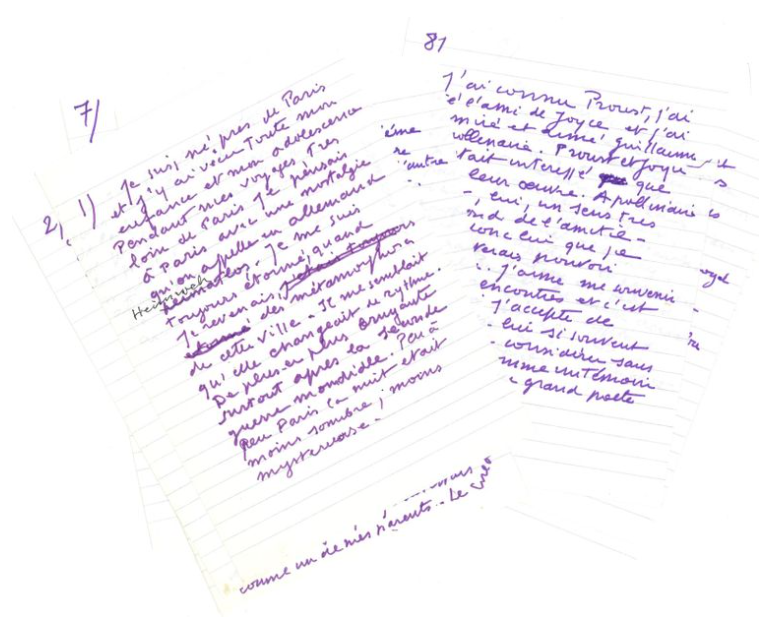 7/
2, 1) Je suis né près de Paris
et j'y ai vécu toute mon
enfance et mon adolescence
Pendant mes voyages très
loin de Paris je pensais
à Paris avec une nostalgie
qu'on appelle en allemand
Heimweh
. Je me suis
toujours étonné, quand
je revenais,
des métamorphoses
de cette ville. Il me semblait
qu'elle changeait de rythme.
De plus en plus bruyante
surtout après la seconde
guerre mondiale. Peu à
peu Paris la nuit était
moins sombre, moins
mystérieuse.
comme un de mes parents. Le
81
J'ai connu Proust, j'ai
été l'ami de Joyce et j'ai
et aimé Guillaume
ollinaire. Proust et Joyce
tait intéressé que
leur œuvre. Apollinaire
, lui, un sens très
nd de l'amitié
donc lui que je
verais pouvoir
. J'aime me souvenir
encontres et c'est
j'accepte de
lui si souvent
considérer sans
mme un témoin
grand poète
ême
re
l'autre